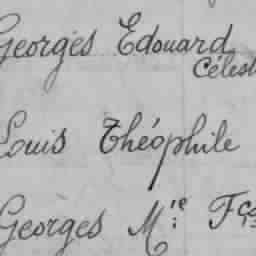 Georges Edouard
Célest
Louis Théophile
Georges M.ie Fcs